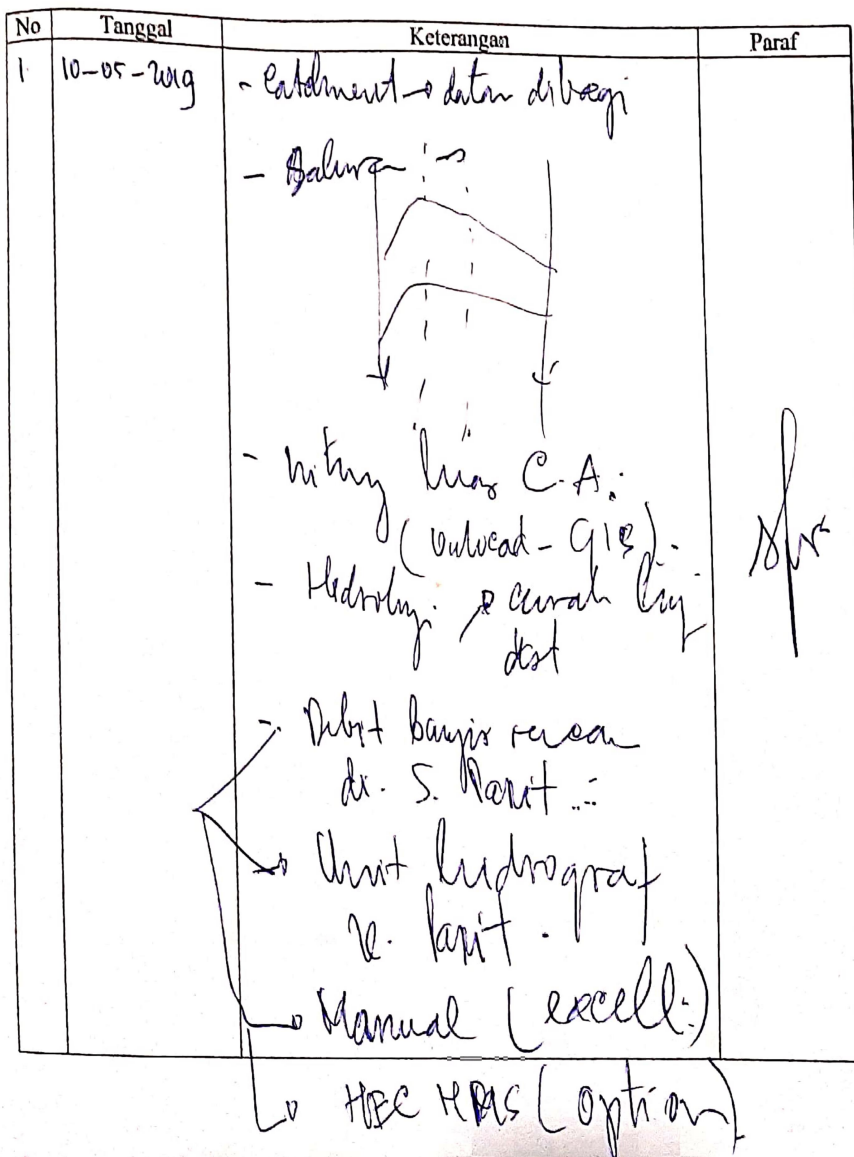 No Tanggal Keterangan Paraf
1 10-05-2019 - Catchment → dibagi
- Saluran →
- hitung luas C.A.
(autocad - GIS).
- Hidrologi → curah huj
- Debit banjir rencan
di S. Parit
→ Unit hidrograf
S. Parit.
→ Manual (excell.)
→ HEC HMS (option)